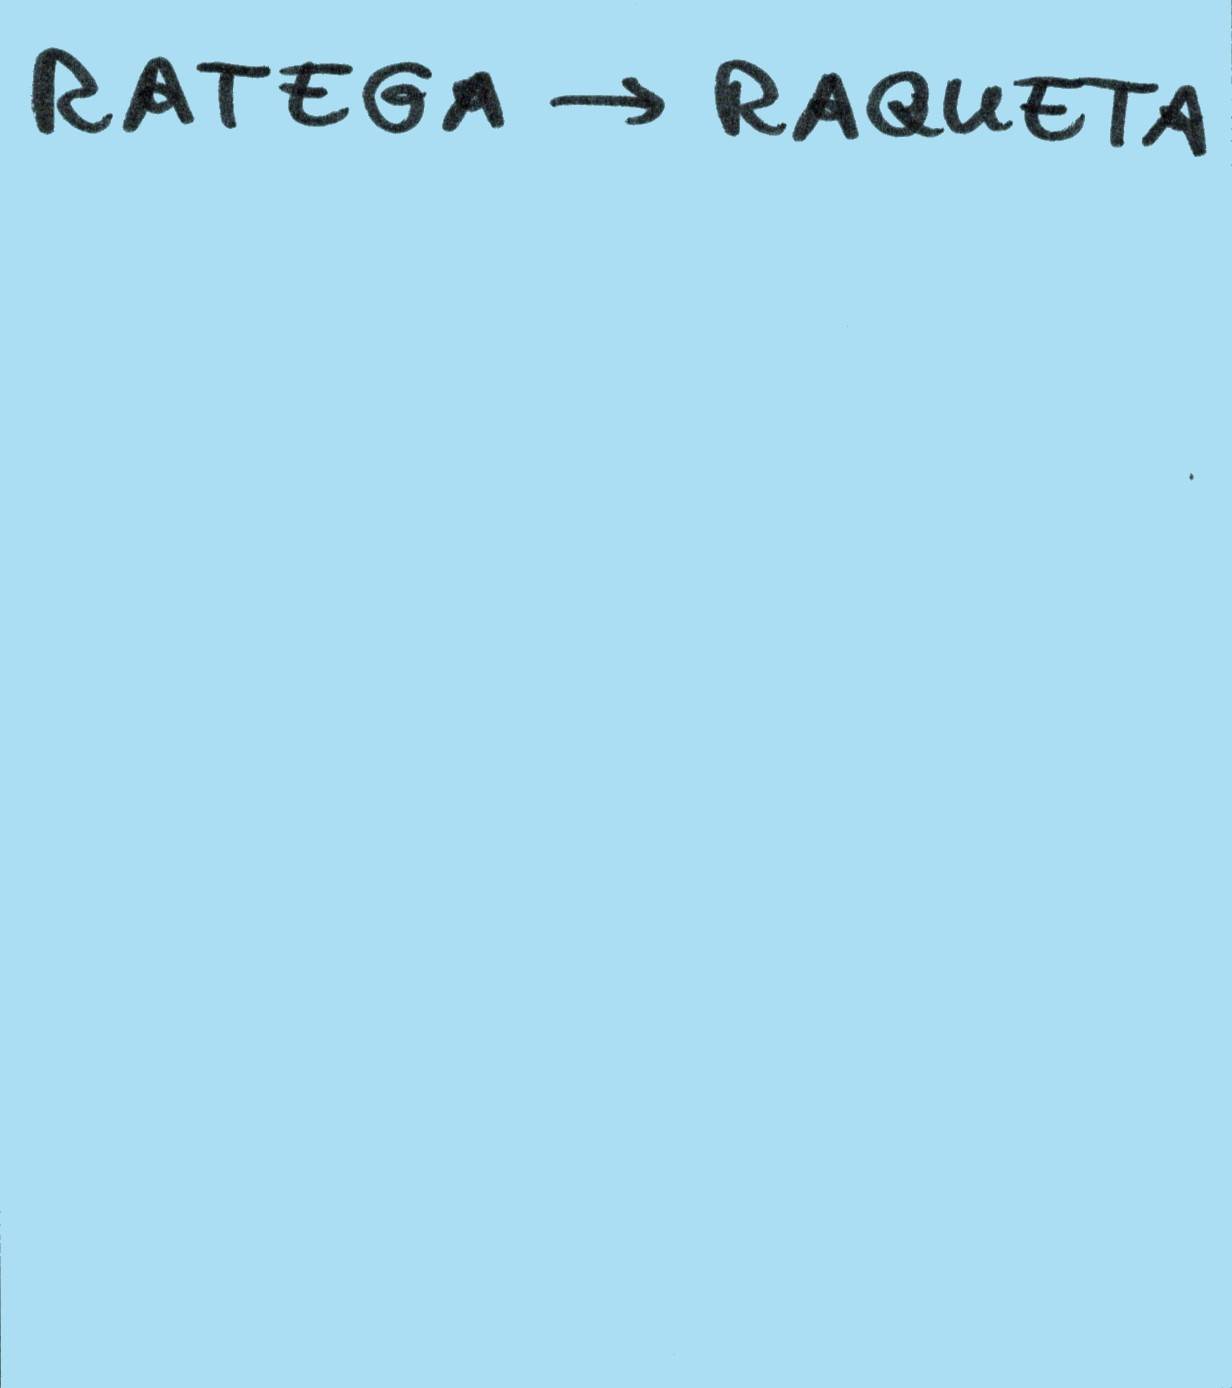 RATEGA → RAQUETA